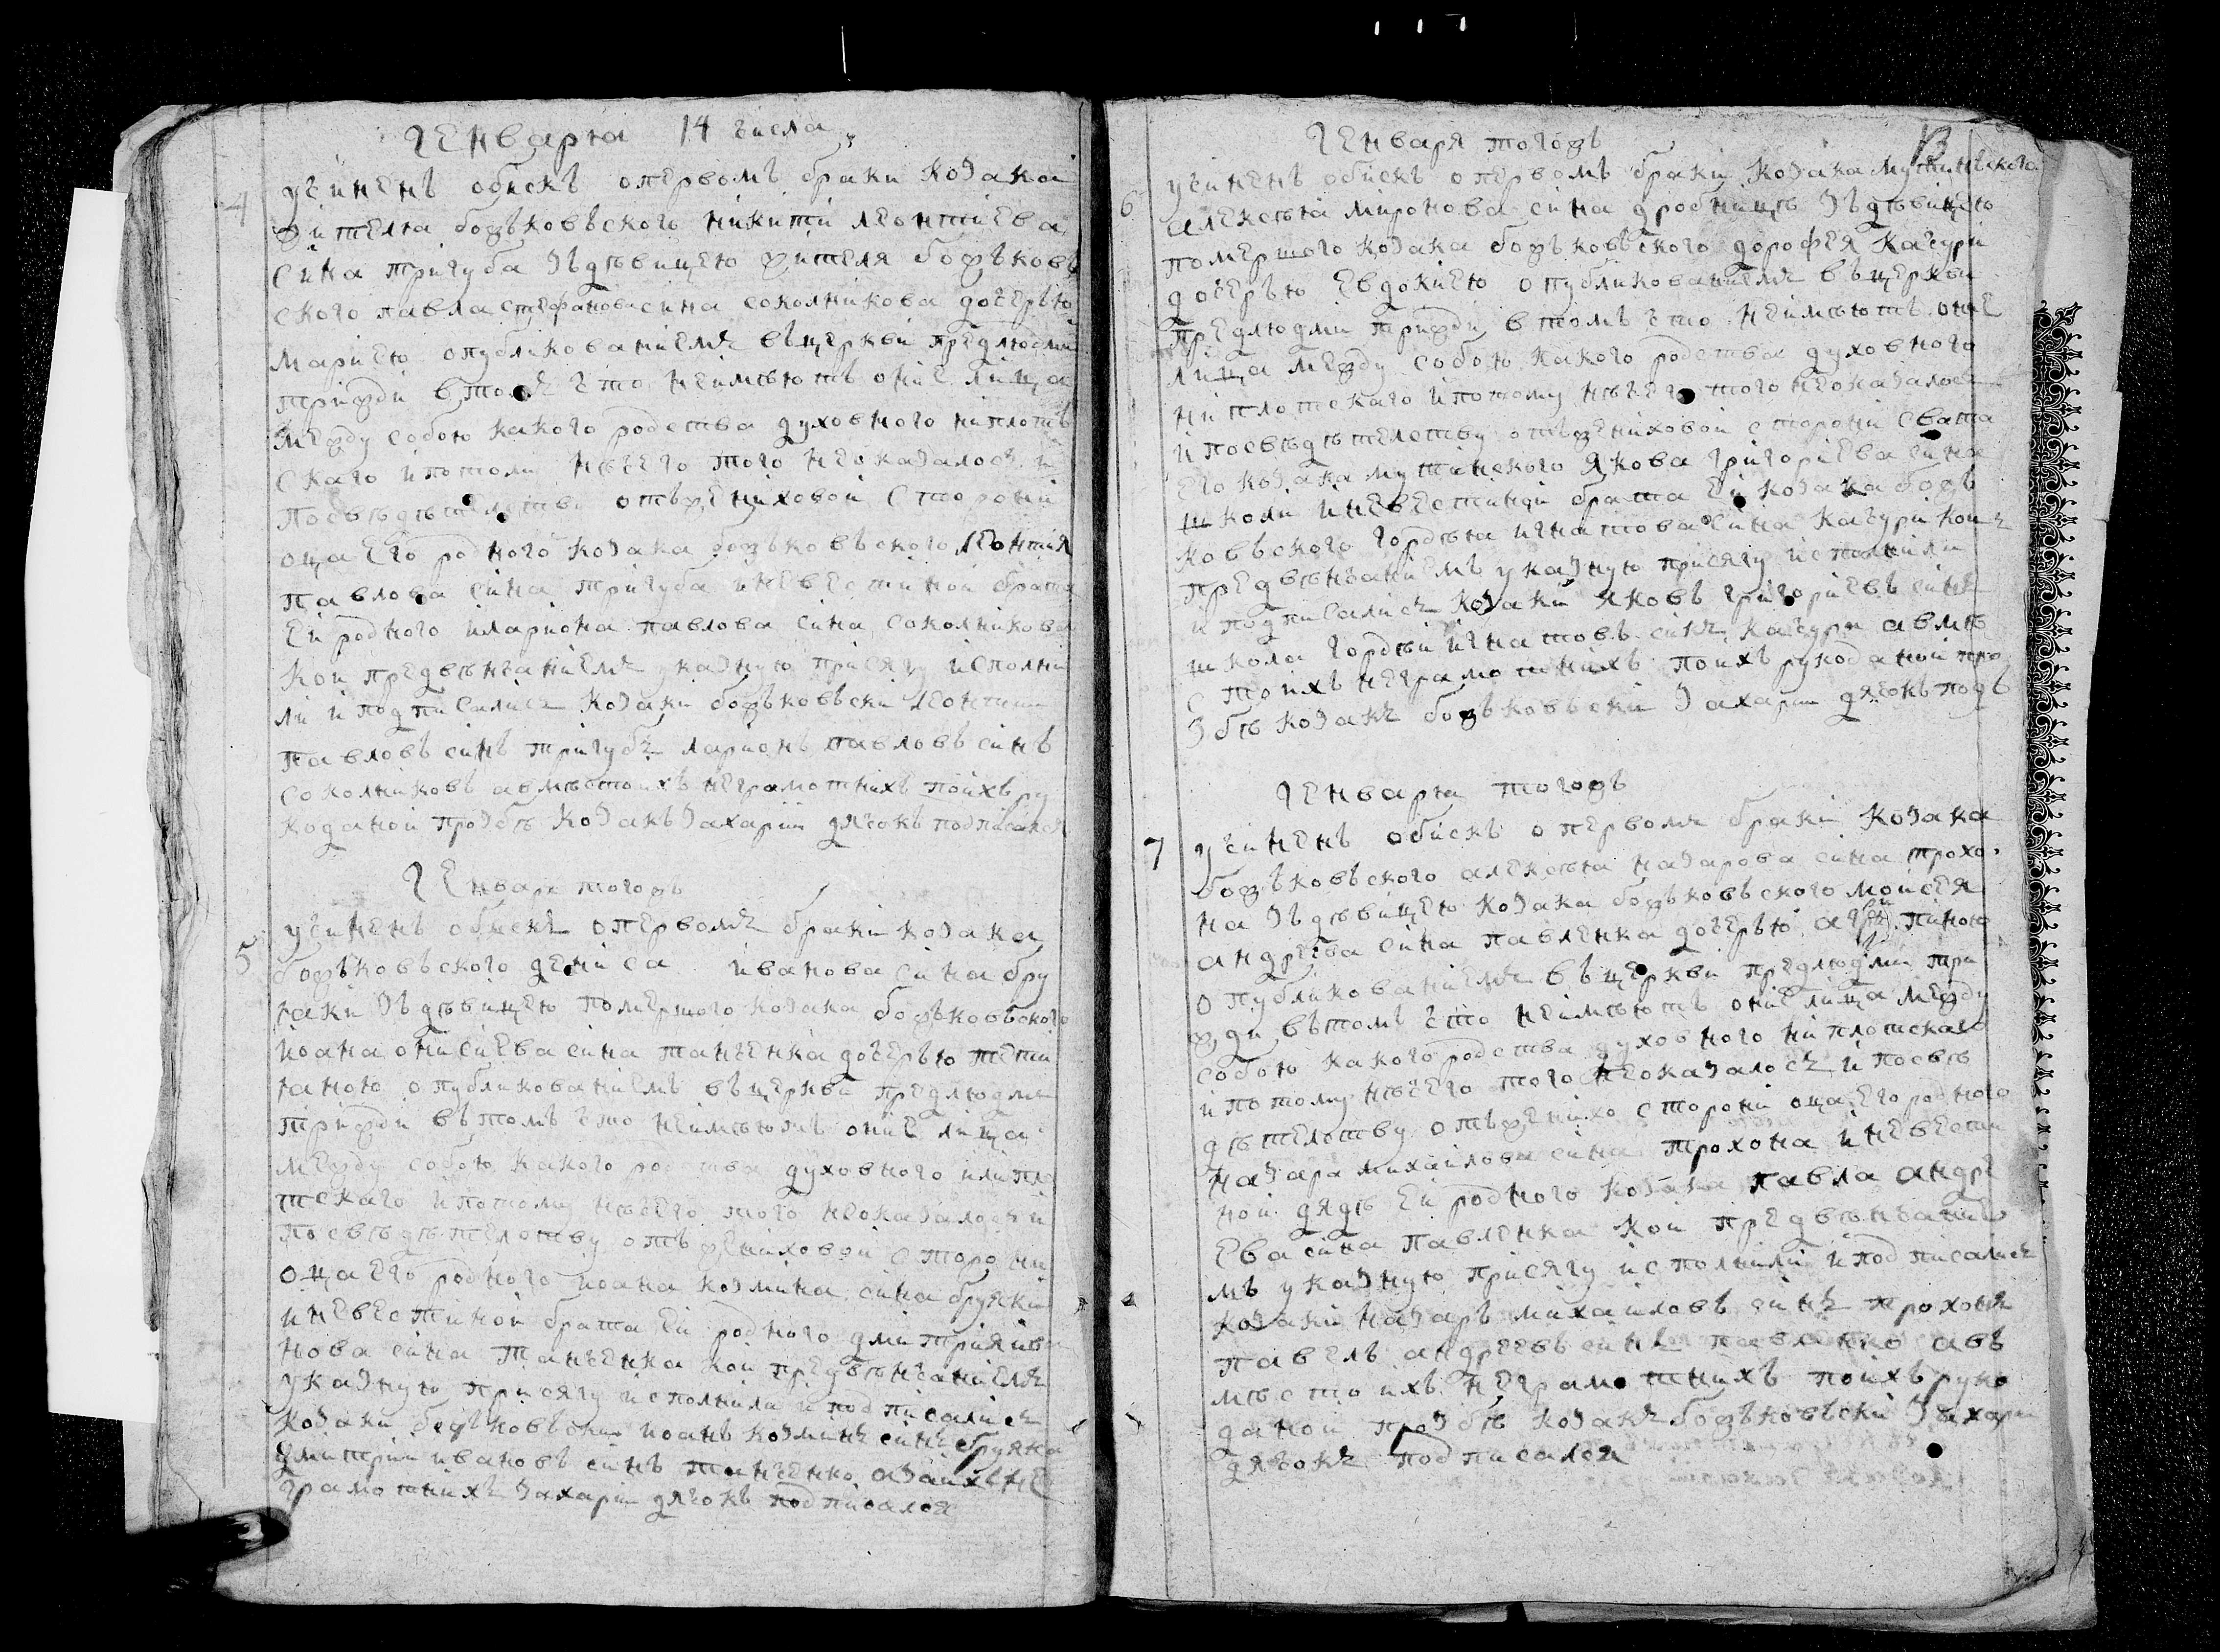 Генваря 14 числа
4
учиненъ обискъ опервомъ браки козака
жителя божъковъского никити леонтиева
сина тригуба зъдѣвицею жителя божъковъ
ского павла стефанова сина соколникова дочерѣю
мариею опубликованиемъ въцеркви предлюдми
трижди втомъ что неимѣютъ оние лица
между собою какого родства духовного ниплотъ
скаго ипотому нѣчего того неоказалось и
посвѣдѣтелству отъжениховой сторони
оца его родного козака божъковъского леонтия
павлова сина тригуба иневестиной брата
ей родного илариона павлова сина соколникова
кои предвѣнчаниемъ указную присягу исполни
ли иподписались козаки божъковъски леонтии
павловъ синъ тригубъ ларионъ павловъ синъ
соколниковъ авмѣстоихъ неграмотнихъ поихъ ру
коданой прозбѣ козакъ захарии дячокъ подписался
Генваря тогожъ
5
учиненъ обискъ опервомъ браки козака
божъковъского дениса иванова сина бру
яки зъдѣвицею помершого козака божъковъского
иоана онисиева сина танченка дочерѣю тети
яною опубликованиемъ въцеркви предлюдми
трижди вътомъ что неимѣютъ оние лица
между собою какого родства духовного илипло
тскаго ипотому нѣчего того неоказалось и
посвѣдѣтелству отъжениховой сторони
оца его родного иоана козмина сина бруяки
иневестиной брата ей родного дмитрия ива
нова сина танченка кои предвѣнчаниемъ
указную присягу исполнили иподписались
козаки божъковъски иоанъ козминъ синъ бруяка
дмитрии ивановъ синъ танченко азаихъ не
грамотнихъ захарии дячокъ подписался
13
Генваря тогожъ
6
учиненъ обискъ опервомъ браки козака мутинъского
алексѣя миронова сина дробницѣ зъдѣвицею
помершого козака божъковъского дорофея качури
дочерѣю евдокиею опубликованиемъ въцеркви
предлюдми трижди втомъ что неимѣютъ оние
лица между собою какого родства духовного
ниплотскаго ипотому нѣчего того неоказалось
ипосвѣдѣтелству отъжениховой сторони свата
его козака мутинского якова григориева сина
школи иневестиной брата ей козака божъ
ковъского гордѣя игнатова сина качури коиъ
предвѣнчаниемъ указную присягу исполнили
иподписались козаки яковъ григориевъ синъ
школа гордѣй игнатовъ синъ качура авмѣ
стоихъ неграмотнихъ поихъ рукоданой про
збѣ козакъ божъковъски захарии дячокъ подъ
Генваря тогожъ
7
учиненъ обискъ опервомъ браки козака
божъковъского алексѣя назарова сина трохо
на зъдѣвицею козака божъковъского мойсея
андреева сина павленка дочерѣю агрипиною
опубликованиемъ въцеркви предлюдми три
жди вътомъ что неимѣютъ оние лица между
собою какого родства духовного ниплотскаго
ипотому нѣчего того неоказалось ипосвѣ
дѣтелству отъженихо сторони оца его родного
назара михаилова сина трохона иневести
ной дядѣ ей родного козака павла андре
ева сина павленка кои предвѣнчание
мъ указную присягу исполнили иподписались
козаки назаръ михаиловъ синъ трохонъ
павелъ андреевъ синъ павленко авъ
мѣстоихъ неграмотнихъ поихъ руко
даной прозбѣ козакъ божъковъски захари
дячокъ подписался